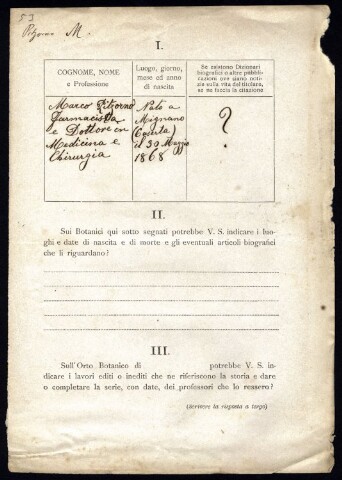 53
M.
I.
COGNOME, NOME
e Professione
Luogo, giorno,
mese ed anno
di nascita
Se esistono Dizionari
biografici o altre pubbli-
cazioni ove siano noti-
zie sulla vita del titolare,
se ne faccia la citazione
Marco Pitzorno
Farmacista
e Dottore in
Medicina e
Chirurgia
Nato a
Mignano
(Caserta)
il 30 Maggio
1868
?
II.
Sui Botanici qui sotto segnati potrebbe V. S. indicare i luo-
ghi e date di nascita e di morte e gli eventuali articoli biografici
che li riguardano?
III.
Sull'Orto Botanico di potrebbe V. S. in-
dicare i lavori editi o inediti che ne riferiscono la storia e dare
o completare la serie, con date, dei professori che lo ressero?
(Scrivere la risposta a tergo)